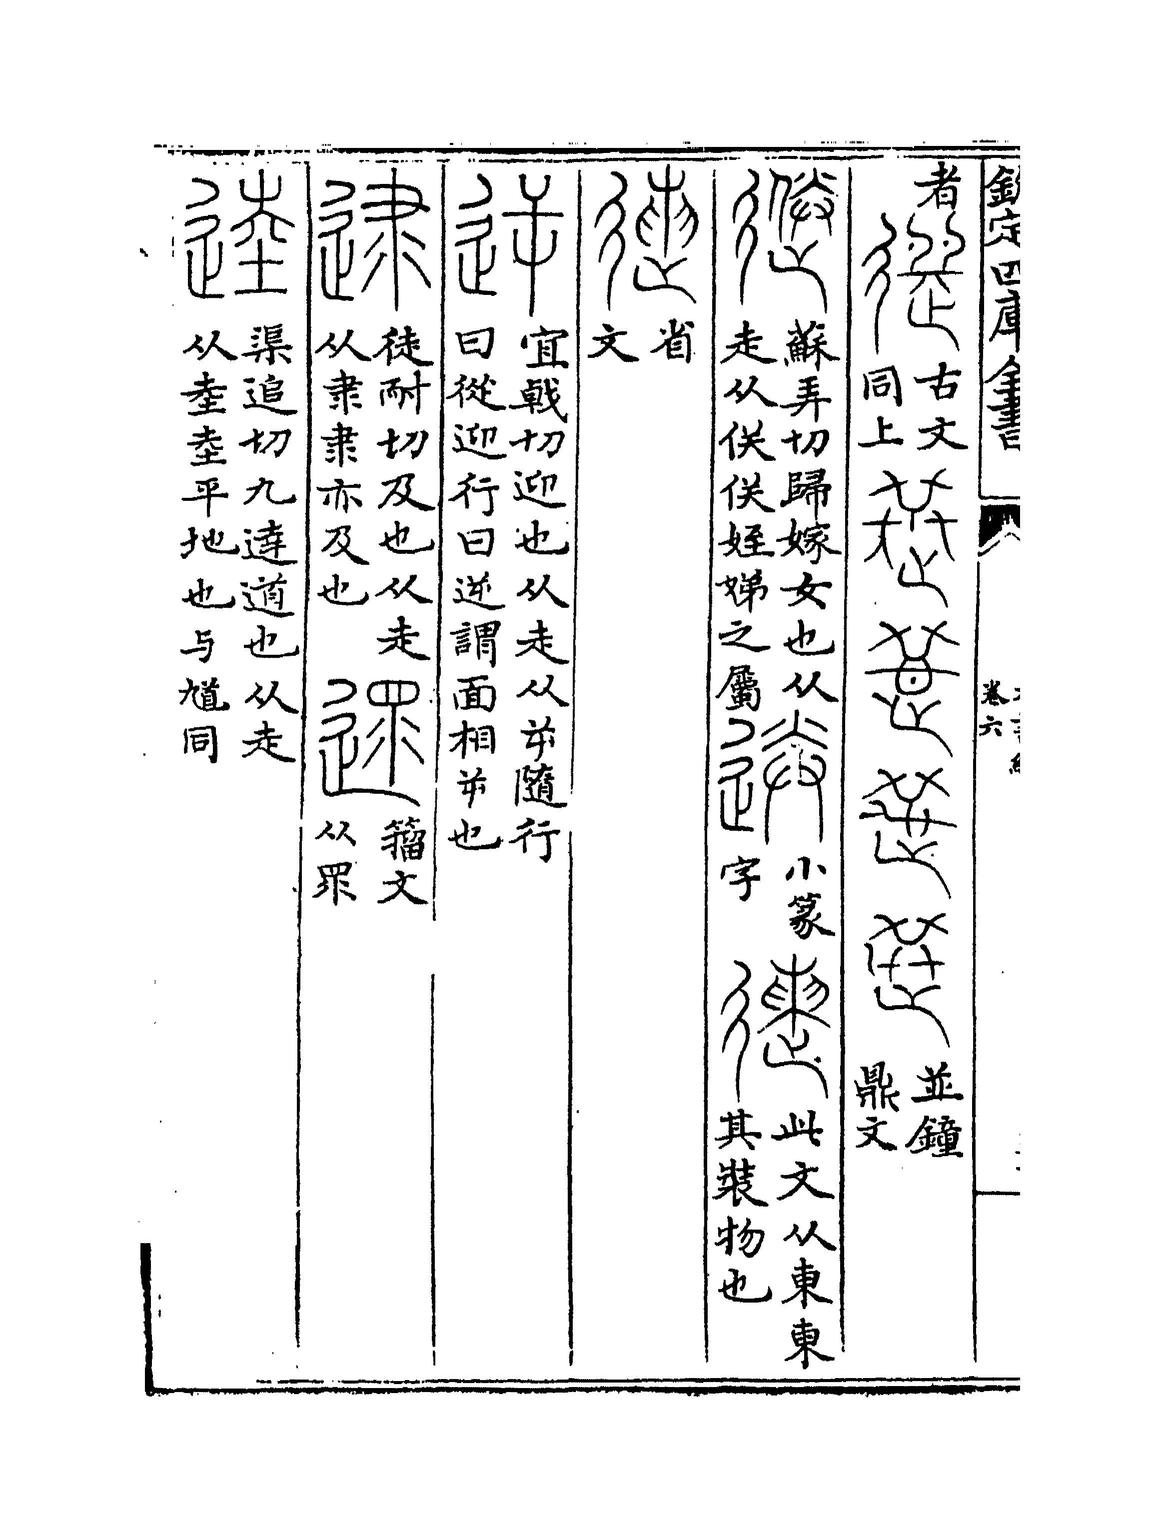 欽定四庫全書
卷六
者
古文
同上
並鐘
鼎文
蘇弄切歸嫁女也从
走从佚佚姪娣之屬
小篆
字
此文从東東
其裝物也
省
文
宜戟切迎也从走从屰隨行
曰從迎行曰逆謂面相屰也
徒耐切及也从走
从隶隶亦及也
籀文
从眔
渠追切九達道也从走
从坴坴平地也与馗同